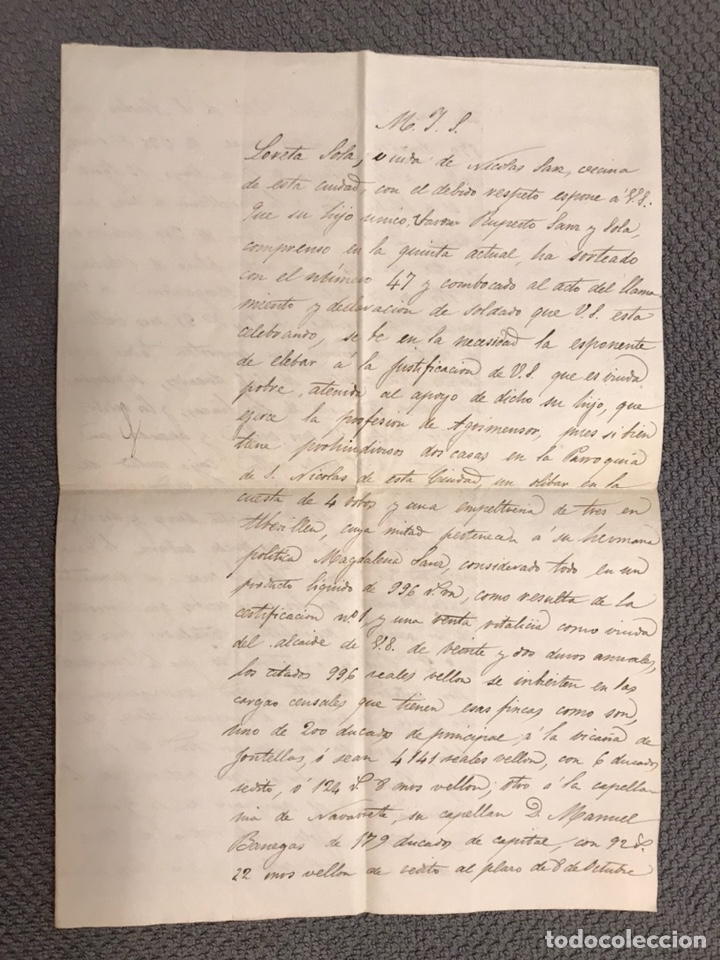 M. I. S.
Loreta Sola, viuda de Nicolas Sanz, vecina
de esta ciudad, con el debido respeto espone á V.S.
Que su hijo único, Varon Ruperto Sanz y Sola,
comprenso en la quinta actual, ha sorteado
con el número 47 y combocado al acto del llama
miento y declaracion de soldado que V.S. esta
celebrando, se be en la necesidad la esponente
de elebar á la Justificacion de V.S. que es viuda
pobre, atenida al apoyo de dicho su hijo, que
ejerce la profesion de Agrimensor, pues si bien
tiene prohindivisos dos casas en la Parroquia
de S. Nicolas de esta Ciudad, un olibar en la
cuesta de 4 robos y una de tres en
cuya mitad pertenece á su hermana
politica Magdalena Sanz, considerado todo en un
producto liquido de 996 r.s vn, como resulta de la
certificacion n.º 1, y una renta vitalicia como viuda
del alcaide de V.S. de veinte y dos duros anuales,
los citados 996 reales vellon se inbierten en las
cargas censales que tienen esas fincas como son,
uno de 200 ducados de principal, á la vicaria de
Fontellas, ó sean 4141 reales vellon, con 6 ducados
redito, ó 124 r.s 8 mrs vellon; otro á la capella
nia de Navarrete, su capellan D. Manuel
Banegas de 179 ducados de capital, con 92 r.s
22 mrs vellon de redito al plazo de 8 de Octubre
todocoleccion
todocoleccion.net